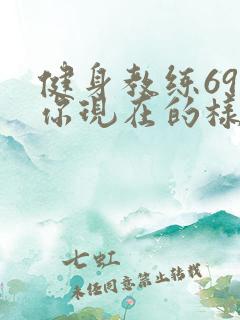 健身教练69
你现在的样
七虹
未经同意禁止转载